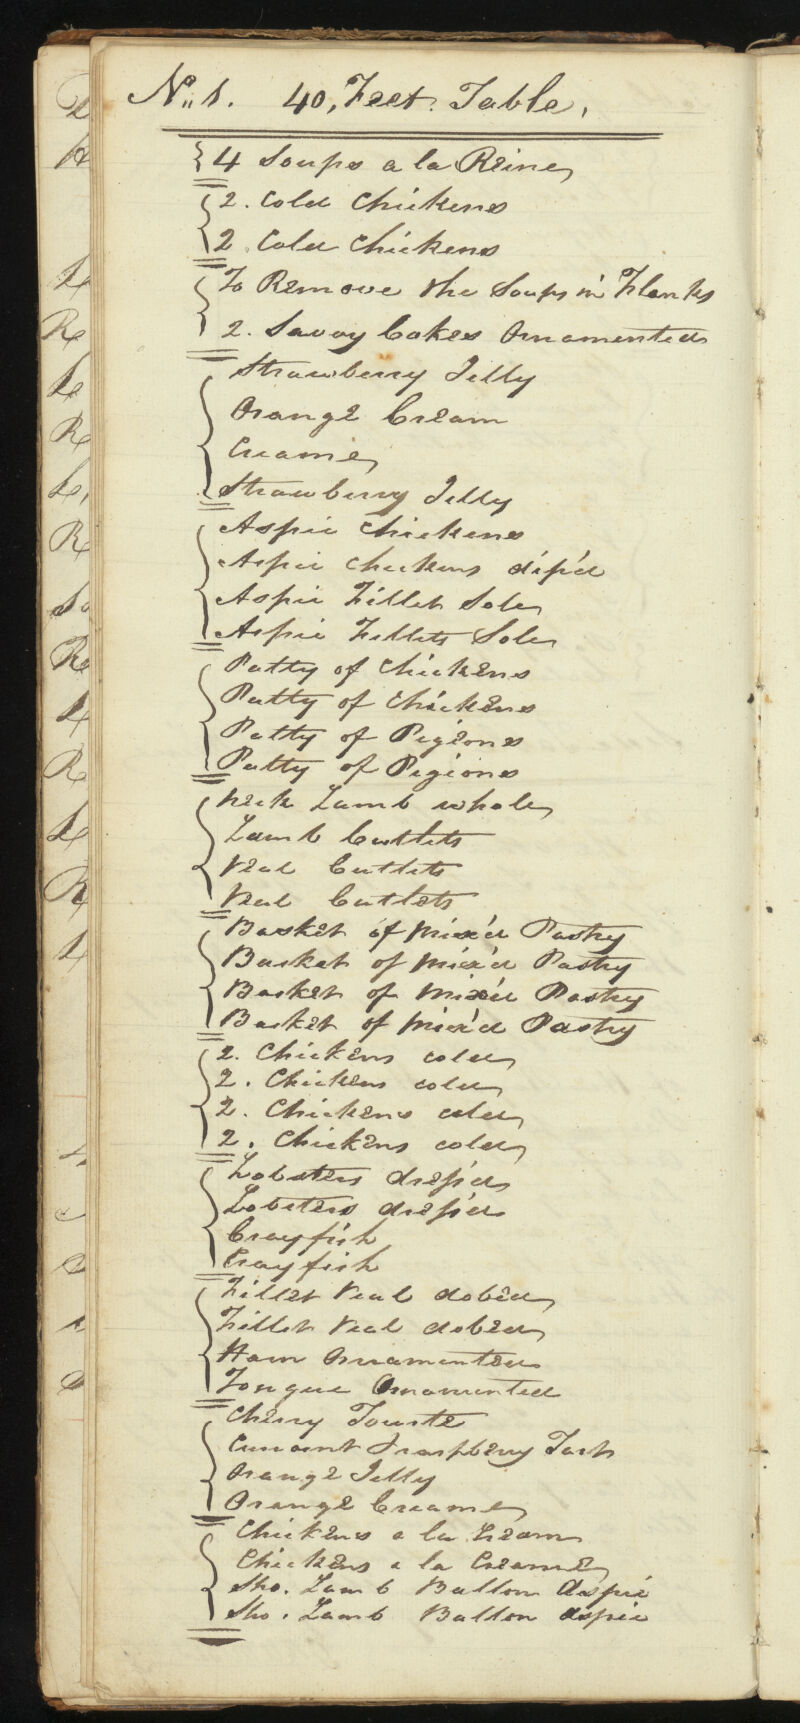 No. 1. 40, Feet. Table,
4 Soups a la Reine
2. Cold Chickens
2. Cold Chickens
To Remove the Soups in Flanks
2. Savoy Cakes Ornamented
Strawberry Jelly
Orange Cream
Creame
Strawberry Jelly
Aspic Chickens
Aspic Chickens
Aspic Fillet Sole
Aspic Fillets Sole
Patty of Chickens
Patty of Chickens
Patty of Pigeons
Patty of Pigions
Neck Lamb whole
Lamb Cutlets
Veal Cutlets
Veal Cutlets
Basket of Mix'd Pastry
Basket of Mix'd Pastry
Basket of Mix'd Pastry
Basket of Mix'd Pastry
2. Chickens cold
2. Chickens cold
2. Chickens cold
2. Chickens cold
Lobsters dress'd
Lobsters dress'd
Crayfish
Crayfish
Fillet Veal dobed
Fillet Veal dobed
Ham Ornamented
Tongue Ornamented
Cherry Tourte
Currant & raspberry Tart
Orange Jelly
Orange Creame
Chickens a la Cream
Chickens a la Creame
Sho. Lamb Ballon Aspic
Sho. Lamb Ballon aspic